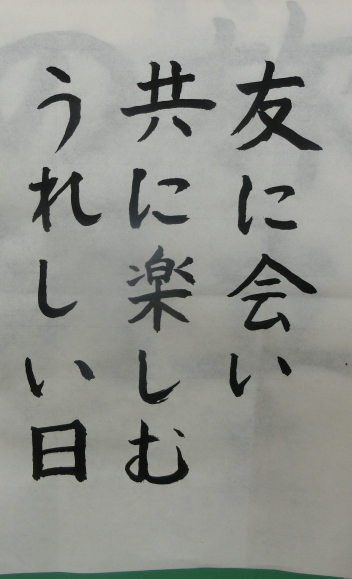 友に会い
共に楽しむ
うれしい日